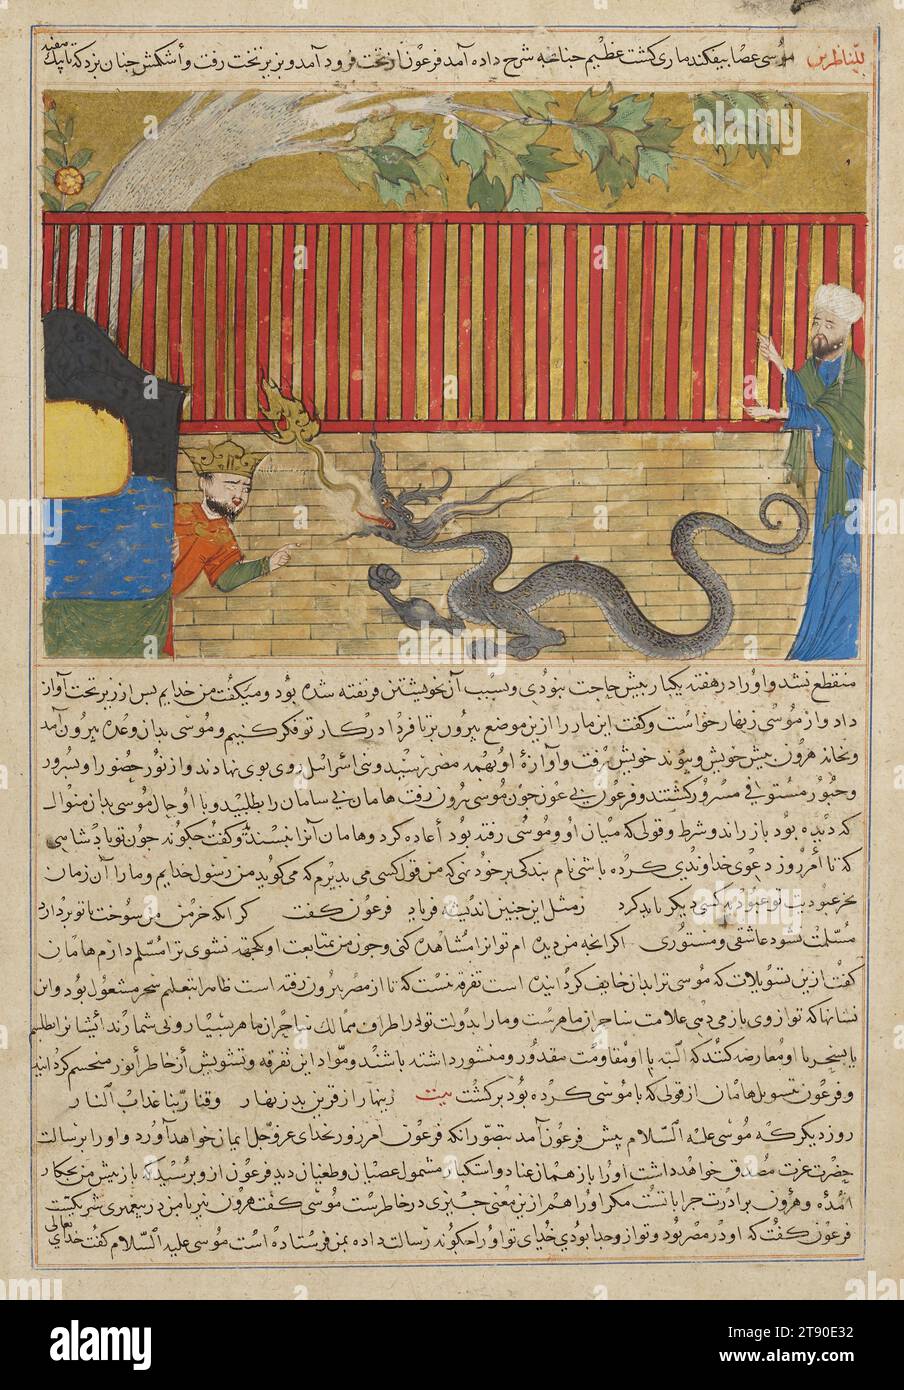 للناظرین موسی عصا بیفکند ماری کشت عظیم جنانجه شرح داده آمد فرعون از تخت فرود آمد و بزیر تخت رفت و
منقطع نشدی و او را در هفته یکبار بیش حاجت نبودی و بسبب آن بخویشتن فریفته شده بود و میکفت من خدایم بس از زیر تخت آواز
داد و از موسی زنهار خواست و کفت این مار را ازین موضع بیرون بر تا فردا در کار تو فکر کنیم و موسی بدان وعده بیرون آمد
و بخانه هرون بیش خویش و بیوند خویش رفت و آوازهٔ او بهمه مصر برسید و بنی اسرائیل روی بوی نهادند و از نور حضور او بسرور
و حبور مستوفی مسرور کشتند و فرعون جون موسی بیرون رفت هامان بی سامان را بطلبید و با او حال موسی بدان منوال
که دیده بود باز راند و شرط و قولی که میان او و موسی رفته بود اعاده کرد و هامان آنرا نبسندید و کفت جکونه جون تو بادشاهی
که تا امروز دعوی خداوندی کرده باشی نام بندکی بر خود نهی که من قول کسی می بذیرم که می کوید من رسول خدایم و ما را آن زمان
بجز عبودیت تو عبودیت کسی دیکر باید کرد ز مثل این جنین اندیشه فریاد فرعون کفت کر انکه خرمن من سوخت با تو بردازد
مسلمت نشود عاشقی و مستوری اکر انجه من دیده ام تو آنرا مشاهده کنی و جون من بمتابعت او یکجهه نشوی ترا مسلم دارم هامان
کفت ازین تسویلات که موسی ترا بدان خایف کردانیده است تفرقه نیست که تا از مصر بیرون رفته است ظاهرا بتعلیم سحر مشغول بود و این
نشانها که تو از وی باز می دهی علامت ساحران ماهرست و ما را بدولت تو در اطراف ممالک ساحران ماهر بسیار
با بسحر با او معارضه کنند که البته با او مقاومت مقدور و منشور داشته باشند و مواد این تفرقه و تشویش از خاطر انور منحسم کردانند
و فرعون بتسویل هامان از قولی که با موسی کرده بود برکشت بیت زینهار از قرین بد زنهار وقنا ربنا عذاب النار
روز دیکر که موسی علیه السلام بیش فرعون آمد بتصور انکه فرعون امروز بخدای عز و جل ایمان خواهد آورد و او را برسالت
حضرت عزت مصدق خواهد داشت او را باز همان عناد و استکبار مشمول عصیان و طغیان دید فرعون از و برسید که باز بیش من بجکار
آمدهٔ و هرون برادرت جرا با تست مکر او را هم ازین معنی جیزی در خاطرست موسی کفت هرون نیز با من در بیغمبری شریکست
فرعون کفت که او در مصر بود و تو از و جدا بودی خدای تو او را جکونه رسالت داده بمن فرستاده است موسی علیه السلام کفت خدای تعالی
alamy
Image ID: 2T90E32
www.alamy.com